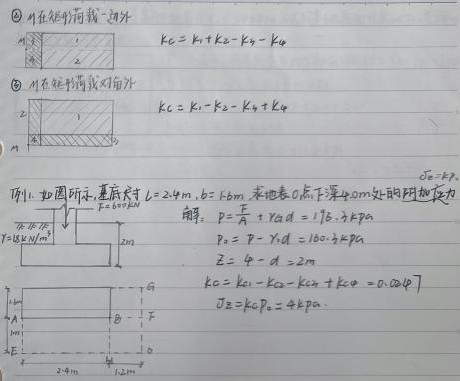 ② M在矩形荷载一边外
Kc = K₁ + K₂ - K₃ - K₄
M
1
2
③ M在矩形荷载对角外
Kc = K₁ - K₂ - K₃ + K₄
2
1
M
例1. 如图所示,基底尺寸 L=2.4m, b=1.6m, 求地表O点下深4.0m处的附加应力
F=600KN
γ=18KN/m³
2m
解: P = F/A + γGd = 196.3kpa
P₀ = P - γ₀d = 160.3kpa
Z = 4 - d = 2m
Kc = Kc1 - Kc2 - Kc3 + Kc4 = 0.0247
σz = KcP₀ = 4kpa.
1.6m
1m
A
B
E
G
F
O
2.4m
1.2m